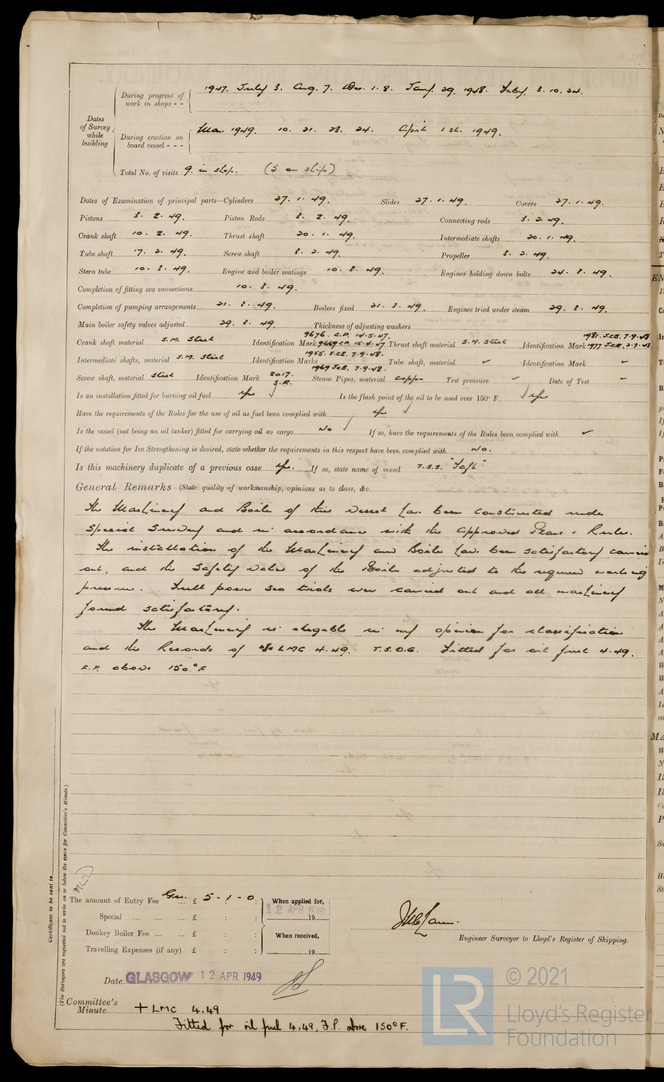 1947. July 3. Aug. 7. Dec. 1. 8. Jany 29. 1948. July. 3. 10. 24.
During progress of work in shops - -
Dates of Survey while building
Mar. 1949. 10. 21. 23. 24. April 1st. 1949.
During erection on board vessel - - -
Total No. of visits 9. in shop. (5 on ship)
Dates of Examination of principal parts—Cylinders 27. 1. 49. Slides 27. 1. 49. Covers 27. 1. 49.
Pistons 8. 2. 49. Piston Rods 8. 2. 49. Connecting rods 8. 2. 49.
Crank shaft 10. 2. 49. Thrust shaft 20. 1. 49. Intermediate shafts 20. 1. 49.
Tube shaft 17. 2. 49. Screw shaft 8. 2. 49. Propeller 8. 2. 49.
Stern tube 10. 3. 49. Engine and boiler seatings 10. 3. 49. Engines holding down bolts 24. 3. 49.
Completion of fitting sea connections 10. 3. 49.
Completion of pumping arrangements 21. 3. 49. Boilers fixed 21. 3. 49. Engines tried under steam 29. 3. 49.
Main boiler safety valves adjusted 29. 3. 49. Thickness of adjusting washers
Crank shaft material S.M. Steel Identification Mark Thrust shaft material S.M. Steel Identification Mark
Intermediate shafts, material S.M. Steel Identification Marks Tube shaft, material ✓ Identification Mark
Screw shaft, material Steel Identification Mark 2017. S.R. Steam Pipes, material Copper Test pressure Date of Test
Is an installation fitted for burning oil fuel yes Is the flash point of the oil to be used over 150° F. yes
Have the requirements of the Rules for the use of oil as fuel been complied with yes
Is the vessel (not being an oil tanker) fitted for carrying oil as cargo No If so, have the requirements of the Rules been complied with ✓
If the notation for Ice Strengthening is desired, state whether the requirements in this respect have been complied with No.
Is this machinery duplicate of a previous case yes. If so, state name of vessel T.S.S.
General Remarks (State quality of workmanship, opinions as to class, &c.
The Machinery and Boiler of this Vessel has been constructed under
Special Survey and in accordance with the approved Plans & Rules.
The installation of the Machinery and Boiler has been satisfactory carried
out, and the Safety Valves of the Boiler adjusted to the required working
pressure. Full power sea trials were carried out and all machinery
found satisfactory.
The Machinery is elegable in my opinion for classification
and the Records of LMC 4.49. T.S.O.G. Fitted for oil fuel 4.49.
F.P. above 150°F
Certificate to be sent to
(The Surveyors are requested not to write on or below the space for Committee's Minute.)
The amount of Entry Fee £ 5 - 1 - 0 When applied for,
12 APR 1949
Special £ : : 19
Donkey Boiler Fee £ : : When received,
Travelling Expenses (if any) £ : : 19
Engineer Surveyor to Lloyd's Register of Shipping.
Date GLASGOW 12 APR 1949
Committee's Minute + LMC 4.49
Fitted for oil fuel 4.49, F.P. above 150°F.
LR
© 2021
Lloyd's Register
Foundation